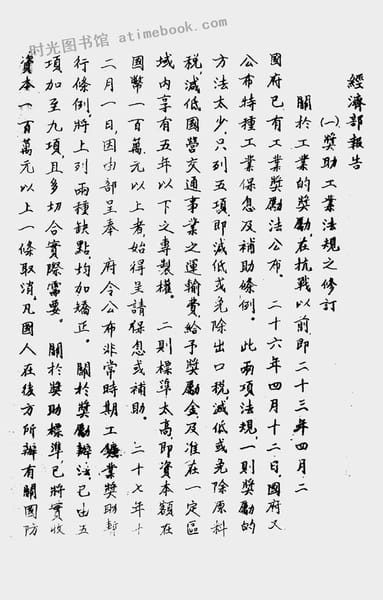 时光图书馆 atimebook.com
經濟部報告
(一)獎助工業法規之修訂
關於工業的獎勵，在抗戰以前，即二十三年四月二
國府已有工業獎勵法公布。二十六年四月十二日，國府又
公布特種工業保息及補助條例。此兩項法規，一則獎勵的
方法太少，只列五項，即減低或免除出口稅，減低或免除原料
稅，減低國營交通事業之運輸費，給予獎勵金，及准在一定區
域內享有五年以下之專製權。二則標準太高，即資本額在
國幣一百萬元以上者，始得呈請保息或補助。二十七年十
二月一日，因由部呈奉 府令公布非常時期工鑛業獎助暫
行條例，將上列兩種缺點，均加矯正。關於獎勵辦法，已由五
項加至九項，且多切合實際需要。關於獎助標準，已將實收
資本一百萬元以上一條取消，凡國人在後方所辦有關國防